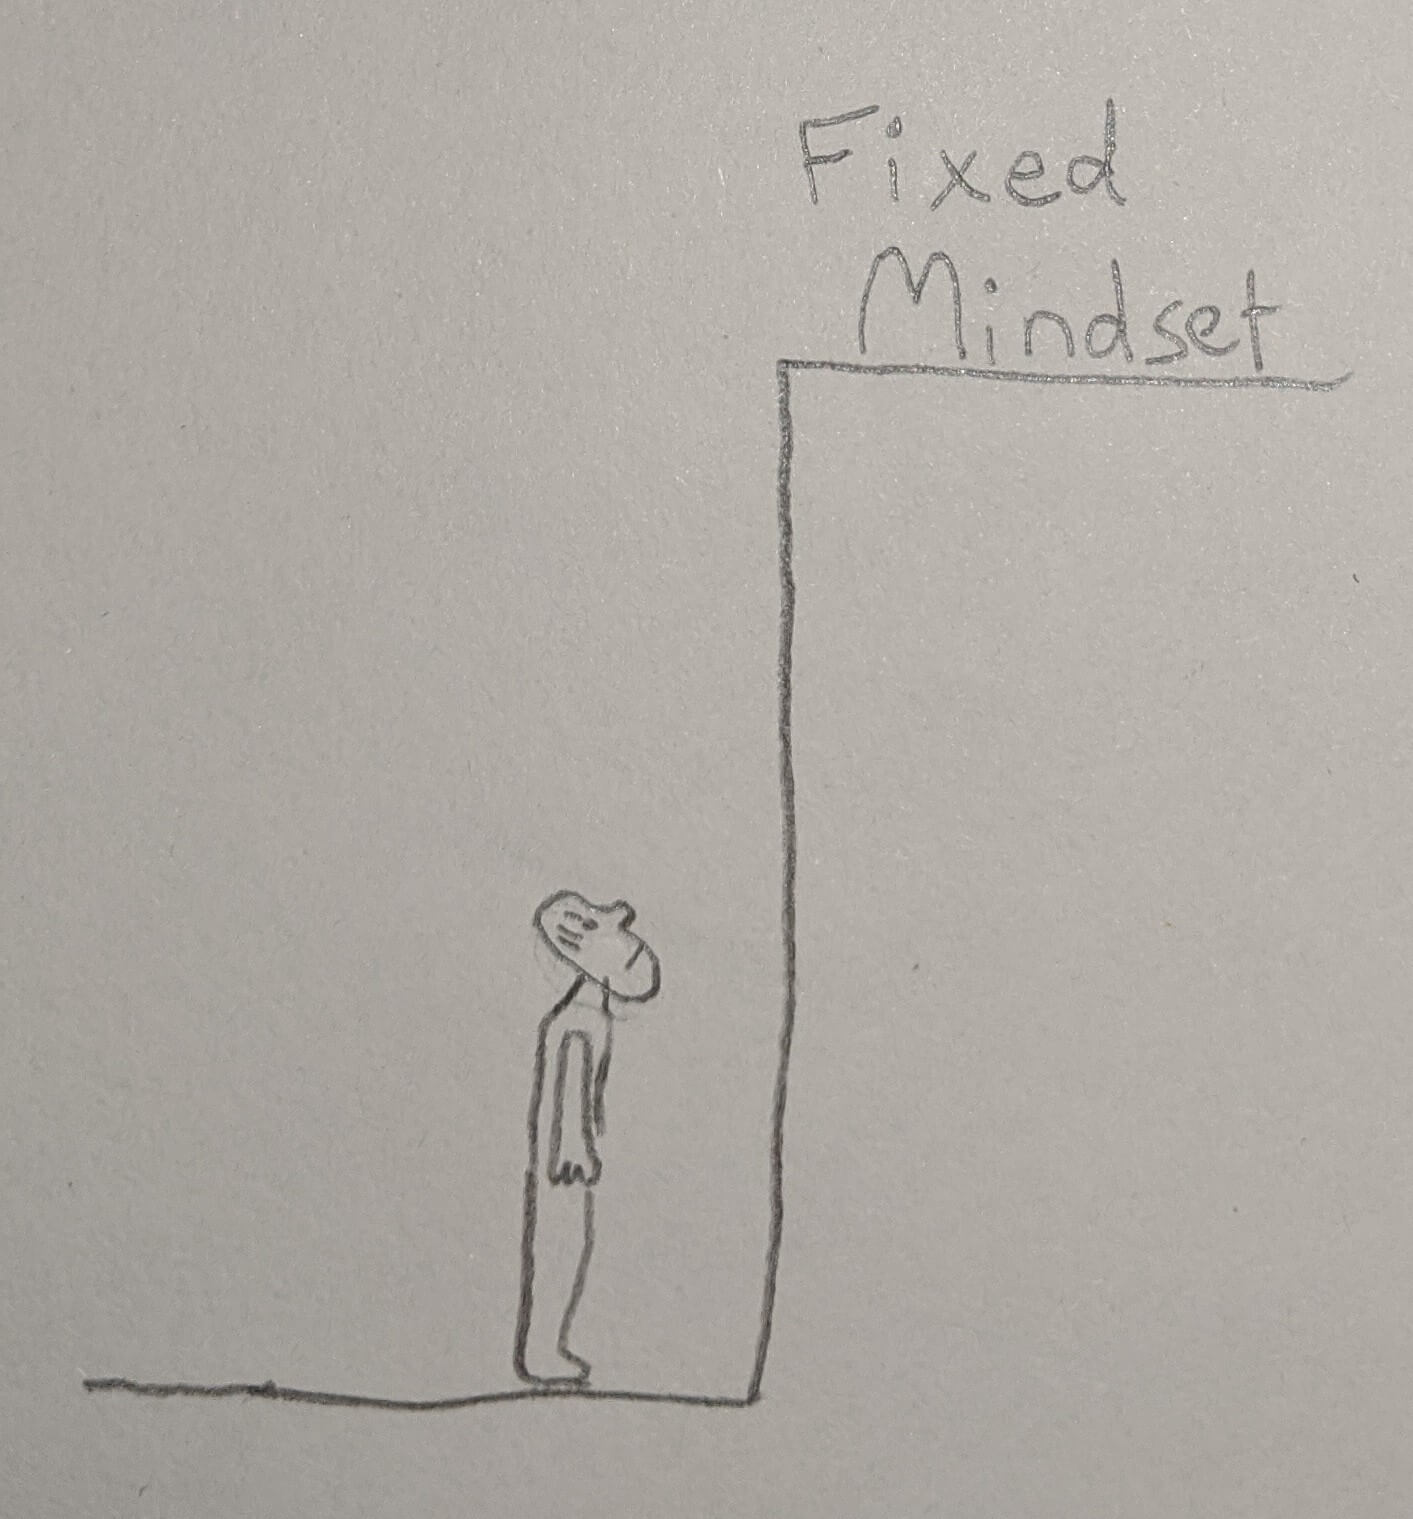 Fixed
Mindset